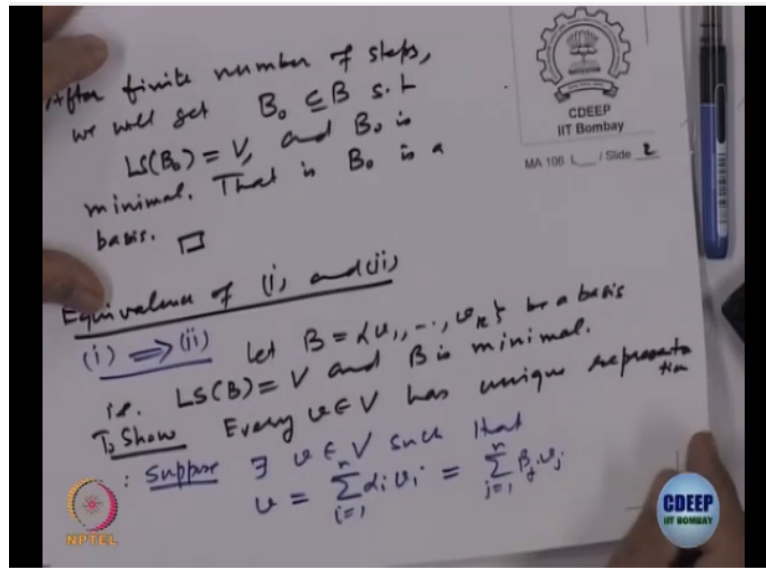 After finite number of steps,
we will get B₀ ⊆ B s.t
LS(B₀) = V, and B₀ is
minimal. That is B₀ is a
basis. □
CDEEP
IIT Bombay
MA 106 L__ / Slide 2
Equivalence of (i) and (ii)
(i) ⟹ (ii) Let B = {v₁, ..., vₙ} be a basis
i.e. LS(B) = V and B is minimal.
To Show Every v ∈ V has unique representation
: Suppose ∃ v ∈ V such that
v = ∑ᵢ₌₁ⁿ αᵢ vᵢ = ∑ⱼ₌₁ⁿ βⱼ vⱼ
NPTEL
CDEEP
IIT BOMBAY